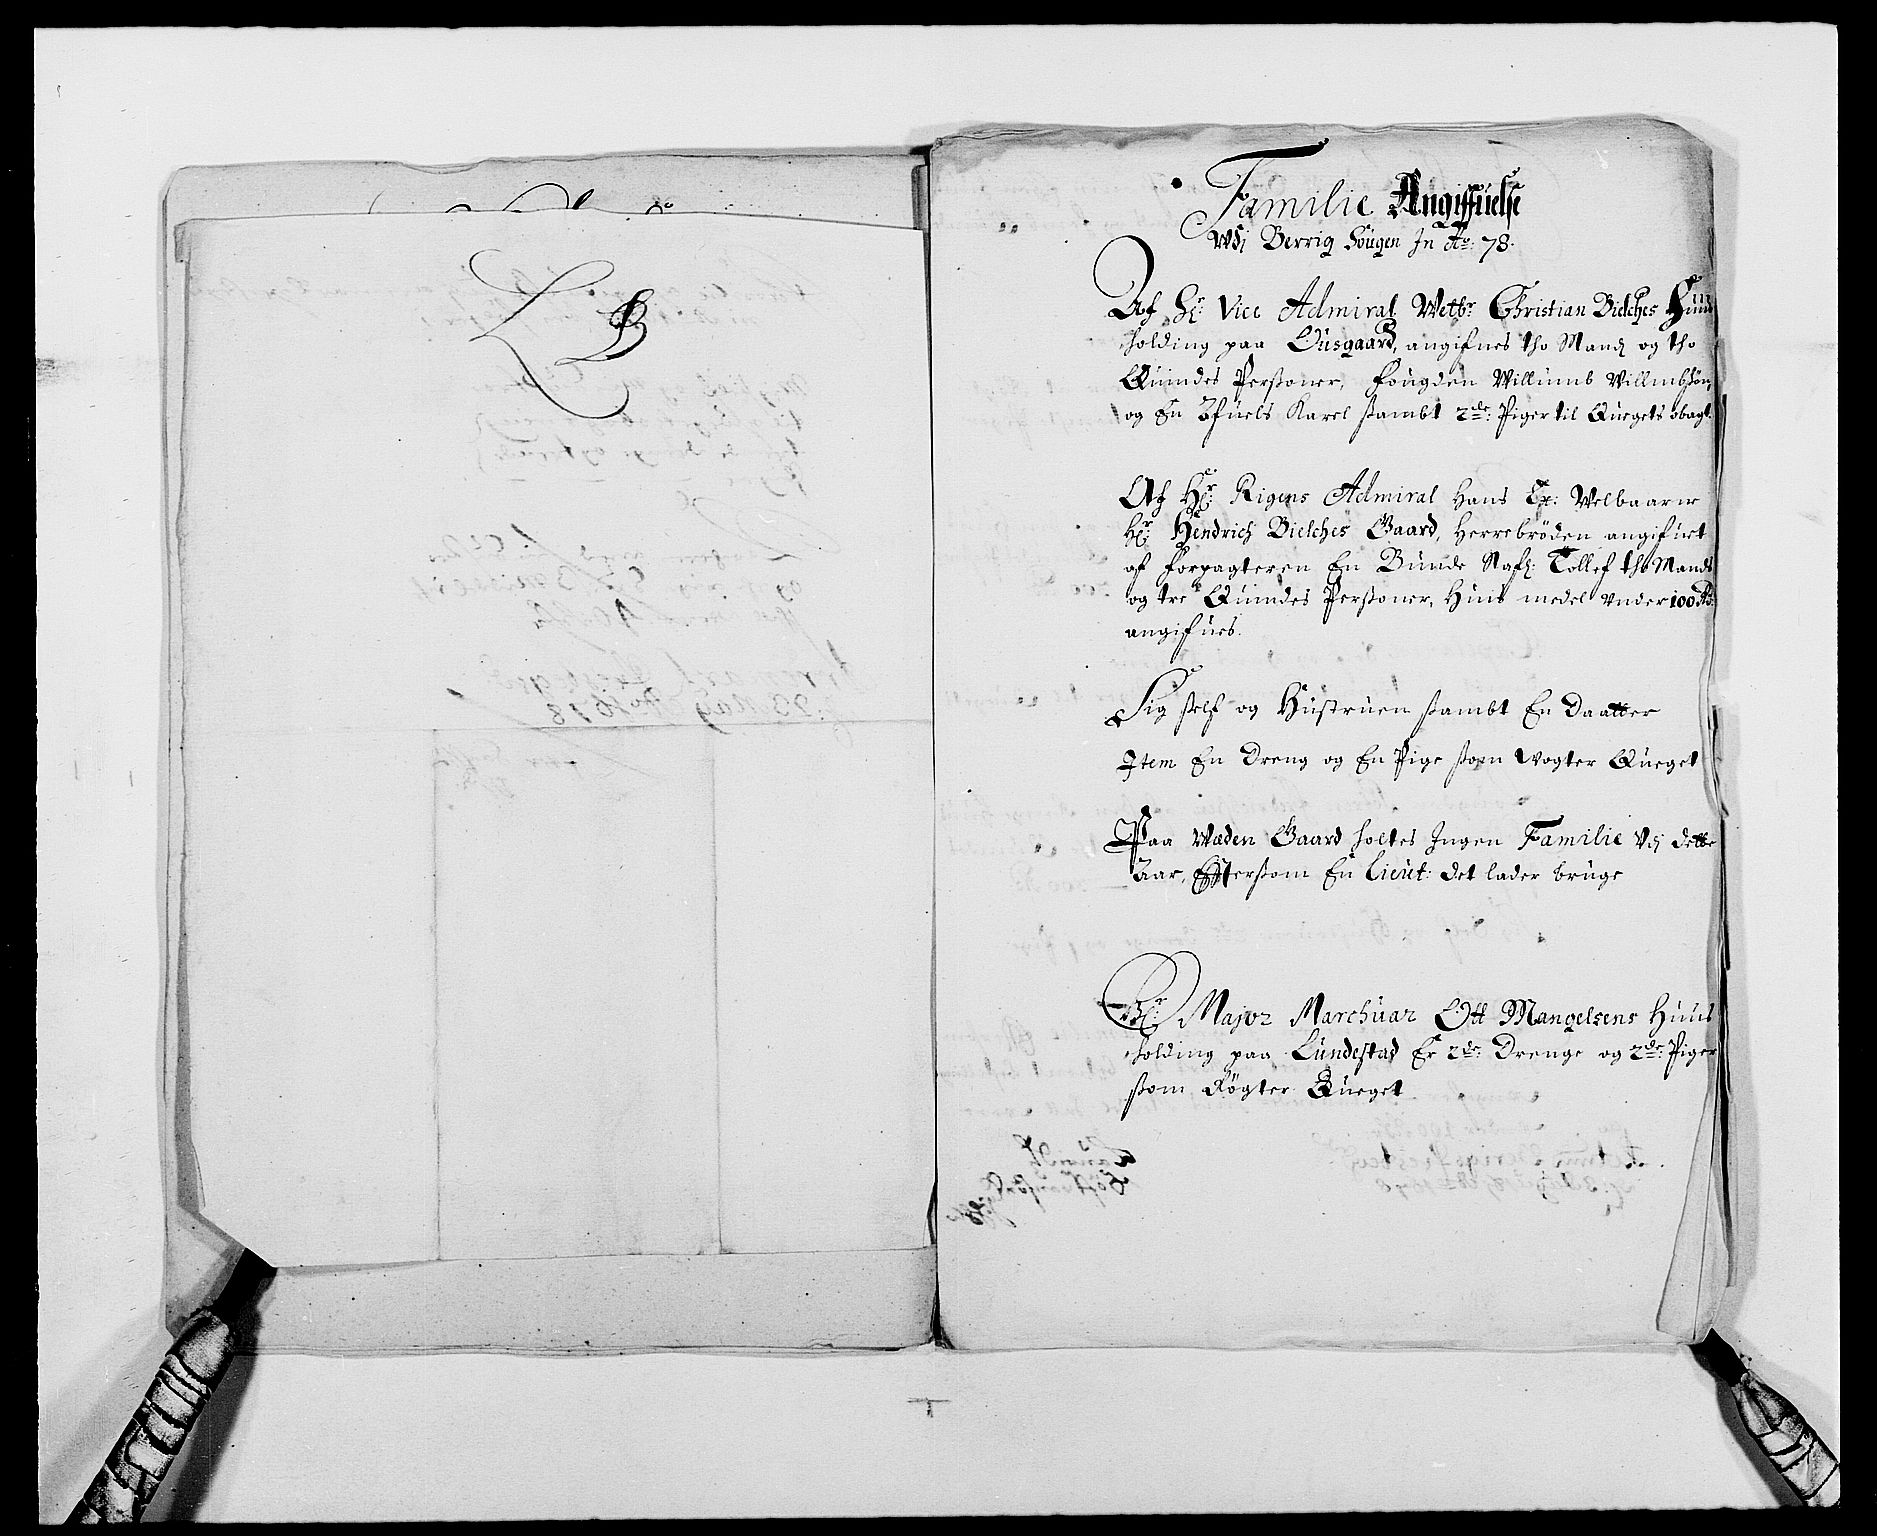 L B
Familie Angiffuelse
Wdj Berrig Sougen In Ao: 78.
Af Hr: Vice Admiral Welbr: Christian Bielches Huus
holding paa Øusgaard, angifues tho Mandz og tho
Quindes Perßoner, Fougden Willumb Willmbßøn,
og En Afuels Karel ßambt 2de: Piger til Quegets obagt.
Af Hr: Rigens Admiral Hans Ex: Velbaarne
Hr: Hendrich Bielches Gaard, Herrebrøden angifuet
af Forpagteren En Bunde Nafl: Tollef tho Mands
og tre Quindes Perßoner, Huis medel Under 100 Rd:
angifues.
Sig ßelf og Hustruen ßambt En Daatter
Item En Dreng og En Pige ßom Vogter Queget
Paa Wæden Gaard holtes Ingen Familie Vdj dette
Aar, Effterßom En Lieut: det lader bruge
Hr: Major Marchuar Ott Mangelsens Huus
holding paa Lundestad Er 2de: Drenge og 2de: Piger
ßom Røgter Queget